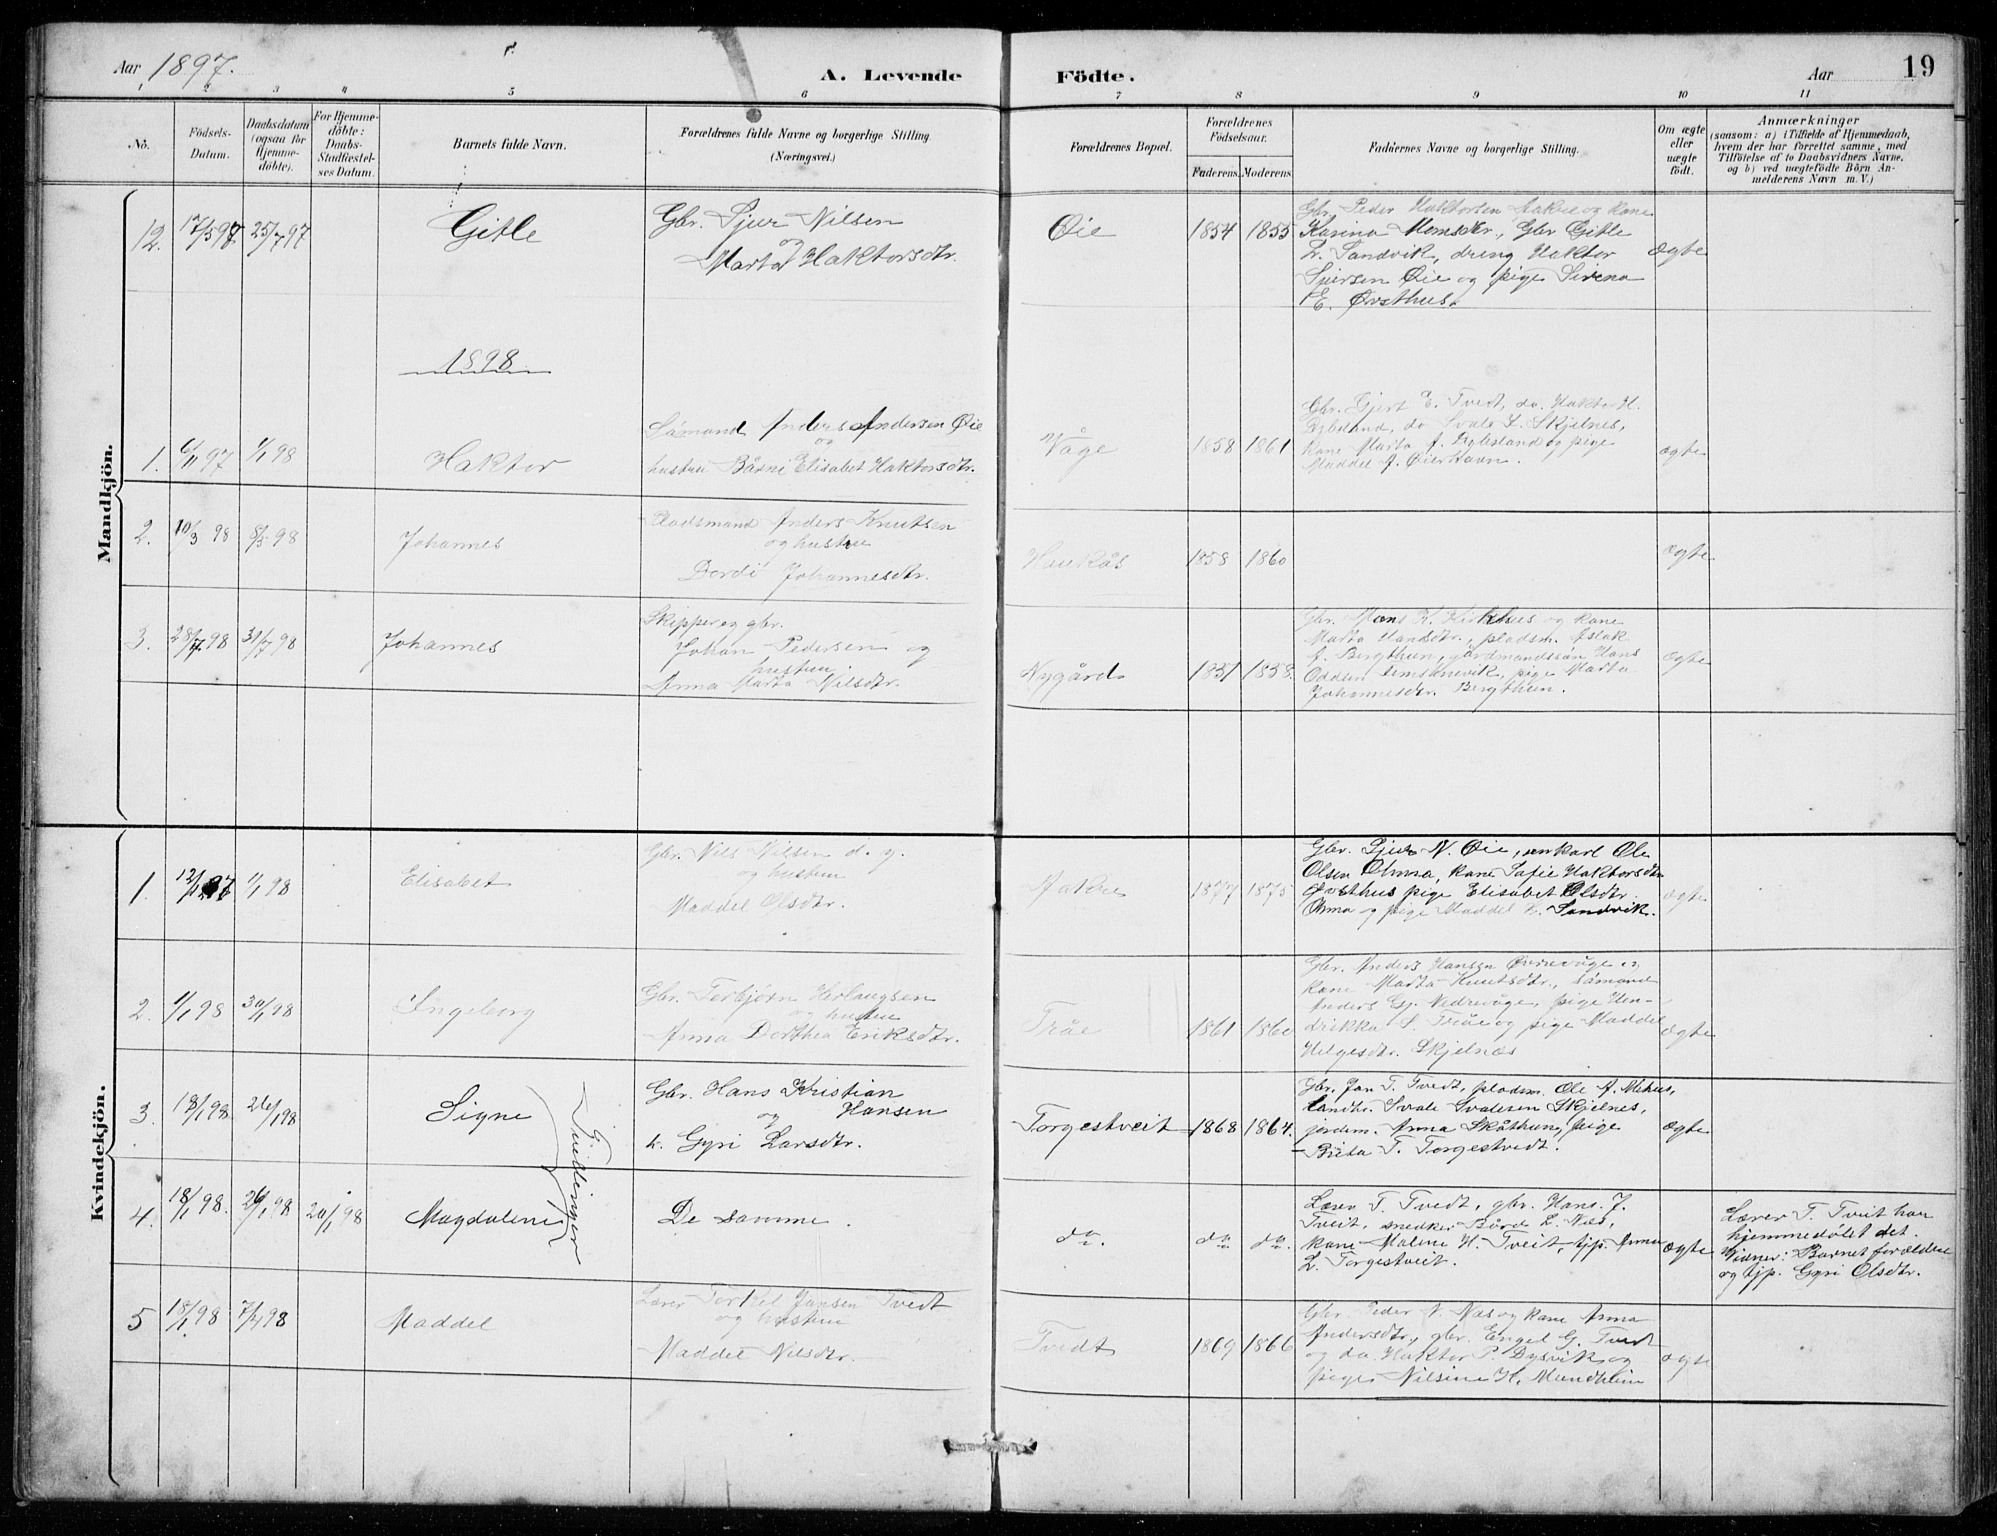 Aar 1897.
A. Levende Födte.
Aar
19
1 2 3 4 5 6 7 8 9 10 11
No.
Födsels-
Datum.
Daabsdatum
(ogsaa for
Hjemme-
døbte).
For Hjemme-
døbte:
Daabs-
Stadfæstel-
ses Datum.
Barnets fulde Navn.
Forældrenes fulde Navne og borgerlige Stilling
(Næringsvei.)
Forældrenes Bopæl.
Forældrenes
Födselsaar.
Faderens. Moderens.
Faddernes Navne og borgerlige Stilling.
Om ægte
eller
uægte
födt.
Anmærkninger
(saasom: a) i Tilfælde af Hjemmedaab,
hvem der har forrettet samme, med
Tilföielse af to Daabsvidners Navne,
og b) ved uægtefödte Börn An-
melderens Navn m. V.)
Mandkjön.
12. 17/5 97 25/7 97
Gitle
Gbr. Sjur Nilsen
og
Marta Haktorsdtr.
Øie
1854 1855
Gbr. Peder Haktorsen Aakre og kone
Karina Monsdtr., Gbr Gitle
L. Sandvik, dreng Haktor
Sjursen Øie og pige Sirena
E. Øvsthus.
ægte
1898
1. 6/11 97 1/1 98
Haktor
Sømand Anders Andersen Øie
og
hustru Bårni Elisabet Haktorsdtr.
Våge
1858 1861
Gbr. Gjert E. Tvedt, do. Haktor H.
Dybsland, do Svale I. Skjelnes,
kone Marta f. Dybsland og pige
Maddel A. Øierhavn.
ægte
2. 10/3 98 8/5 98
Johannes
Pladsmand Anders Knutsen
og hustru
Dordi Johannesdtr.
Haukås
1858 1860
ægte
3. 28/7 98 31/7 98
Johannes
Skipper og gbr.
Johan Pedersen og
hustru
Anna Marta Nilsdtr.
Nygård
1857 1858.
Gbr. Mons K. Kirkhus og kone
Marta Hansdtr., pladsm. Aslak
A. Bergthun, gårdmandssøn Hans
Oddsen Femsteinevik, pige Marta
Johannesdtr. Bergthun.
ægte
Kvindekjön.
1. 12/12 97 1/1 98
Elisabet
Gbr. Nils Nilsen d. y.
og hustru
Maddel Olsdtr.
Aakre
1877 1875
Gbr. Sjur N. Øie, unkarl Ole
Olsen Omma, kone Sofie Haktorsdtr
Øvsthus pige Elisabet Olsdtr.
Omma og pige Maddel L. Sandvik.
ægte
2. 1/1 98 30/1 98
Ingeborg
Gbr. Torbjørn Herlaugsen
og hustru
Anna Dorthea Eriksdtr.
Tråe
1861 1860
Gbr. Anders Hansen Øvrevåge og
kone Marta Knutsdtr., sømand
Anders Gj. Nedrevåge, pige Hen-
drikka S. Tråe og pige Maddel
Helgesdtr. Skjelnæs
ægte
3. 18/1 98 26/1 98
Signe
Tvillinger
Gbr. Hans Kristian
og Hansen
h. Gyri Larsdtr.
Torgestveit
1868 1864.
Gbr. Jan T. Tvedt, pladsm. Ole A. Mehus,
landhr. Svale Svalesen Skjelnes,
jordm. Anna Skåthun, pige
Brita T. Torgestvedt.
ægte
4. 18/1 98. 26/1 98 20/1 98
Magdalene
De samme.
do.
do do.
Lærer T. Tvedt, gbr. Hans. J.
Tveit, snedker Bård L. Nes,
kone Malene H. Tveit, tjp. Anna
L. Torgestveit.
ægte
Lærer T. Tveit har
hjemmedøbt det.
Vidner: Barnets forældre
og tjp. Gyri Olsdtr.
5 18/1 98 7/4 98
Maddel
Lærer Torkel Jansen Tvedt
og hustru
Maddel Nilsdtr.
Tvedt
1869 1866
Gbr. Peder N. Næs og kone Anna
Andersdtr., gbr. Engel G. Tvedt
og do Haktor P. Dysvik og
pige Nilsine H. Mundheim
ægte